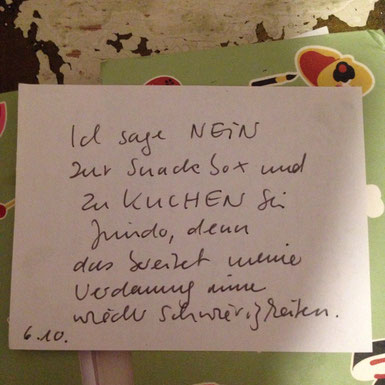 Ich sage NEIN
zur Snackbox und
zu KUCHEN bei
Jimdo, denn
das bereitet meine
Verdauung imme
wieder Schwierigkeiten.
6.10.